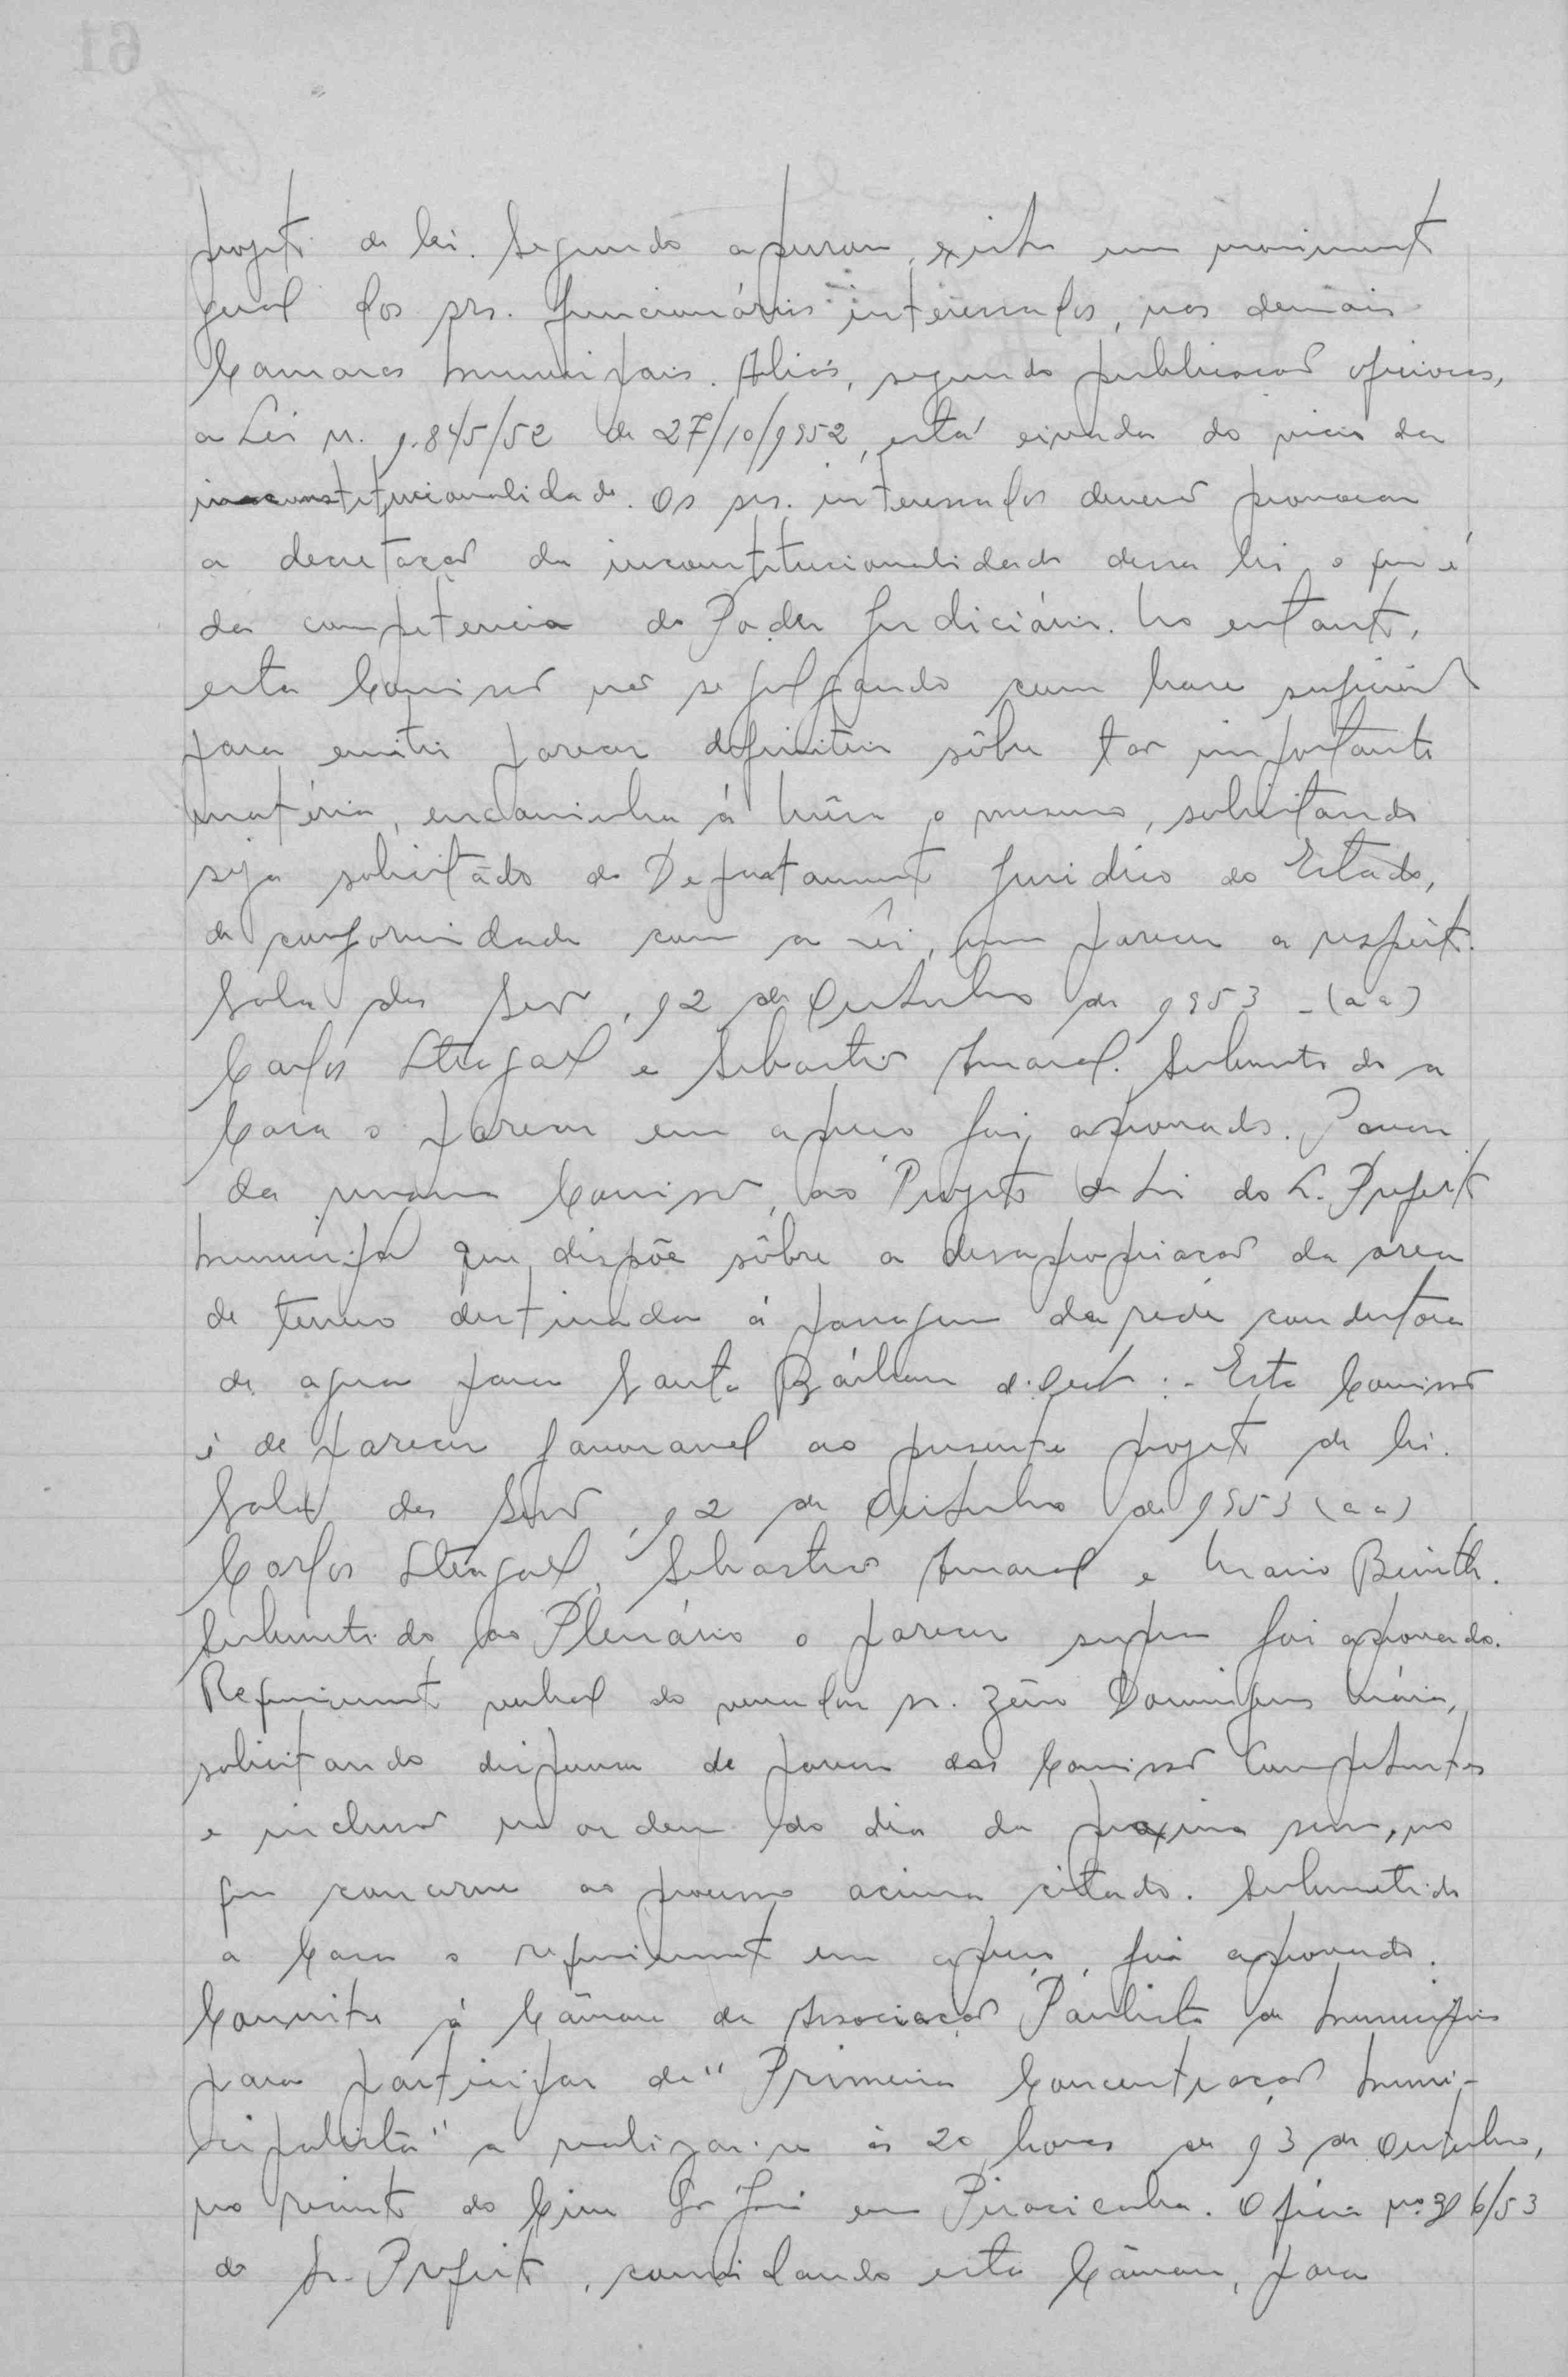 projeto de lei. Segundo apuram, existe um movimento
geral dos srs. funcionários interessados, nas demais
Camaras Municipais. Aliás, segundo publicação oficiosas,
a Lei n. 1.845/52 de 27/10/1952, está eivada do vicio da
inconstitucionalidade. Os srs. interessados devem provocar
a decretação da inconstitucionalidade dessa lei, o que é
da competencia do Poder Judiciário. No entanto,
esta Comissão não se julgando com base suficiente
para emitir parecer definitivo sôbre tão importante
matéria, encaminha á Mêsa o mesmo, solicitando
seja solicitado do Departamento Juridico do Estado,
de conformidade com a lei, um parecer a respeito.
Sala das Sessões, 12 de Outubro de 1953 - (aa)
Carlos Steagal e Sebastião Amaral. Submetido a
Casa o parecer em apreço foi aprovado. Parecer
da mesma Comissão, ao Projeto de Lei do Sr. Prefeito
Municipal que dispõe sôbre a desapropriação da area
de terreno destinada á passagem da rêde condutora
de agua para Santa Bárbara d'Oeste :- Esta Comissão
é de parecer favoravel ao presente projeto de lei.
Sala das Sessões, 12 de Outubro de 1953 (aa)
Carlos Steagal, Sebastião Amaral e Mario
Submetido ao Plenário o parecer supra foi aprovado.
Requerimento verbal do vereador sr. Zêno Domingues Máia,
solicitando dispensa de parecer das Comissões Competentes
e inclusão na ordem do dia da proxima sessão, no
que concerne ao processo acima citado. Submetido
a Casa o requerimento em apreço, foi aprovado.
Convite á Câmara da Associação Paulista de Municipios
para participar da "Primeira Concentração Muni-
cipalista" a realizar-se ás 20 horas de 13 de Outubro,
no recinto do Cine São José em Piracicaba. Oficio nº 6/53
do Sr. Prefeito, convidando esta Câmara, para